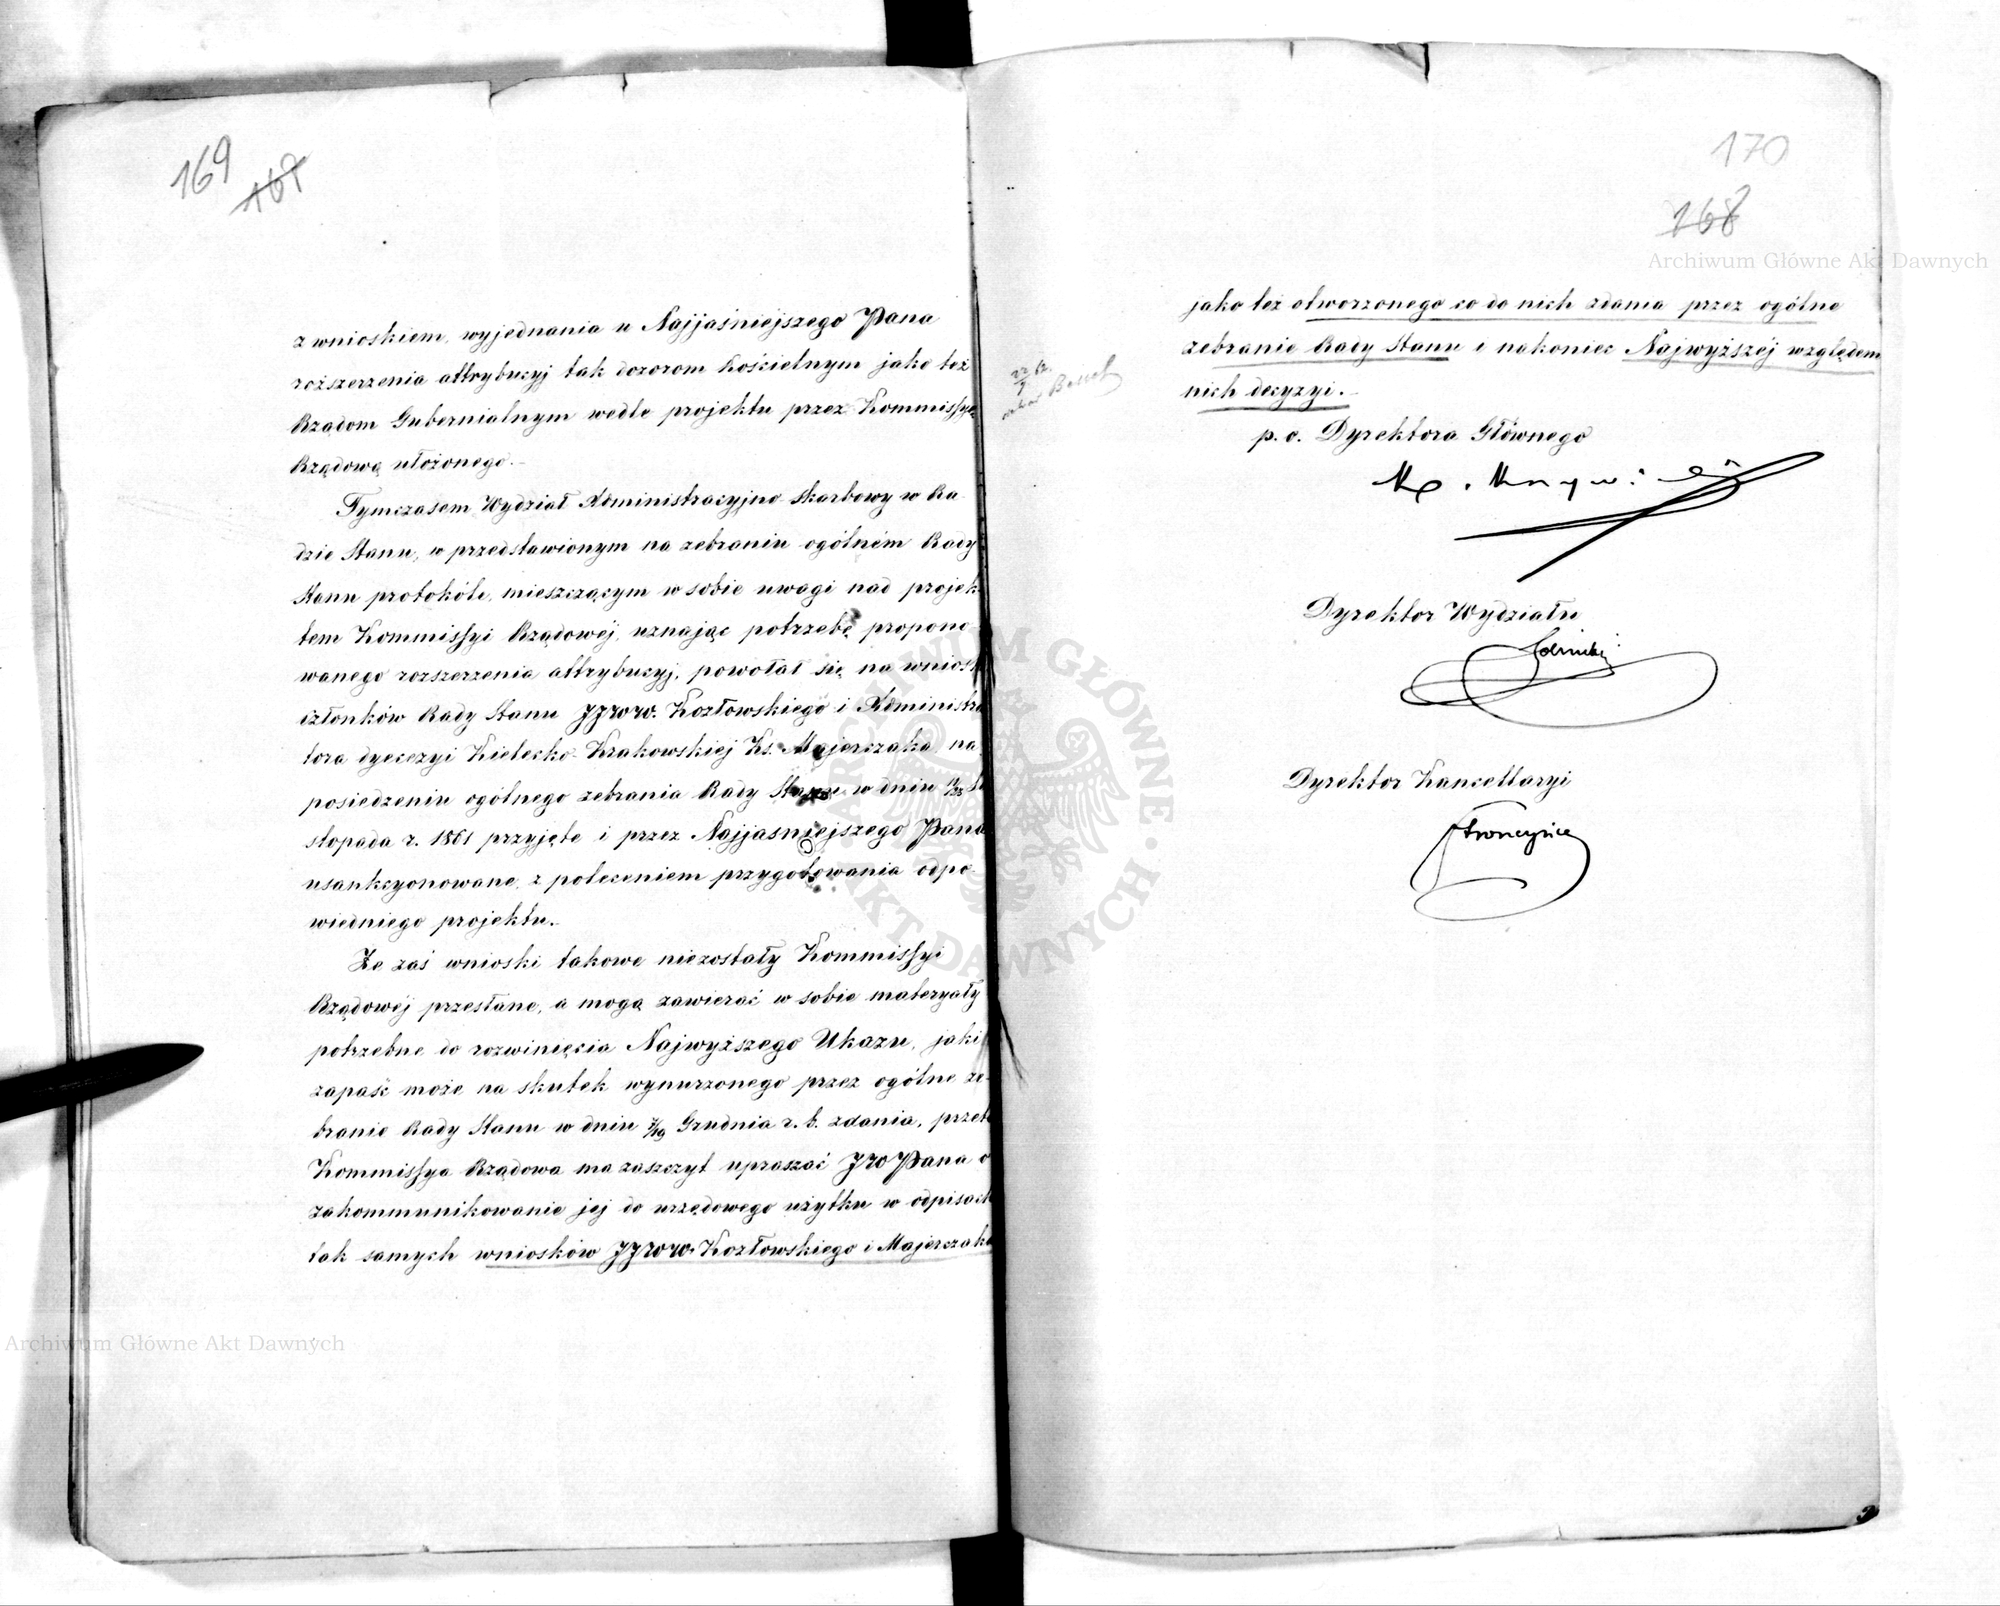 169
167
z wnioskiem, wyjednania u Najjaśniejszego Pana
rozszerzenia attrybucyj tak dozorom kościelnym jako też
Rządom Gubernialnym wedle projektu przez Kommissyę
Rządową ułożonego.
Tymczasem Wydział Administracyjno Skarbowy w Ra
dzie Stanu, w przedstawionym na zebraniu ogólném Rady
Stanu protokóle, mieszczącym w sobie uwagi nad projek
tem Kommissyi Rządowéj, uznając potrzebę propono
wanego rozszerzenia attrybucyj, powołał się na wniosk
członków Rady Stanu JJWW. Kozłowskiego i Administra
tora dyecezyi Kielecko-Krakowskiej Ks. Majerczaka, na
posiedzeniu ogólnego zebrania Rady Stanu w dniu 11/23 Li
stopada r. 1861 przyjęte i przez Najjaśniejszego Pana
usankcyonowane, z poleceniem przygotowania odpo
wiedniego projektu.
Że zaś wnioski takowe niezostały Kommissyi
Rządowéj przesłane, a mogą zawierać w sobie materyały
potrzebne do rozwinięcia Najwyższego Ukazu, jaki
zapaść może na skutek wynurzonego przez ogólne ze-
branie Rady Stanu w dniu 7/19 Grudnia r. b. zdania, przeto
Kommissya Rządowa ma zaszczyt upraszać JW Pana o
zakommunikowanie jej do urzędowego użytku w odpisach
tak samych wniosków JJWW. Kozłowskiego i Majerczaka
170
168
jako też otworzonego co do nich zdania przez ogólne
zebranie Rady Stanu i nakoniec Najwyższéj względem
nich decyzyi.
p. o. Dyrektora Głównego
Dyrektor Wydziału
Dyrektor Kancellaryi
Stronczyński
Archiwum Główne Akt Dawnych
Archiwum Główne Akt Dawnych
ARCHIWUM GŁÓWNE AKT DAWNYCH